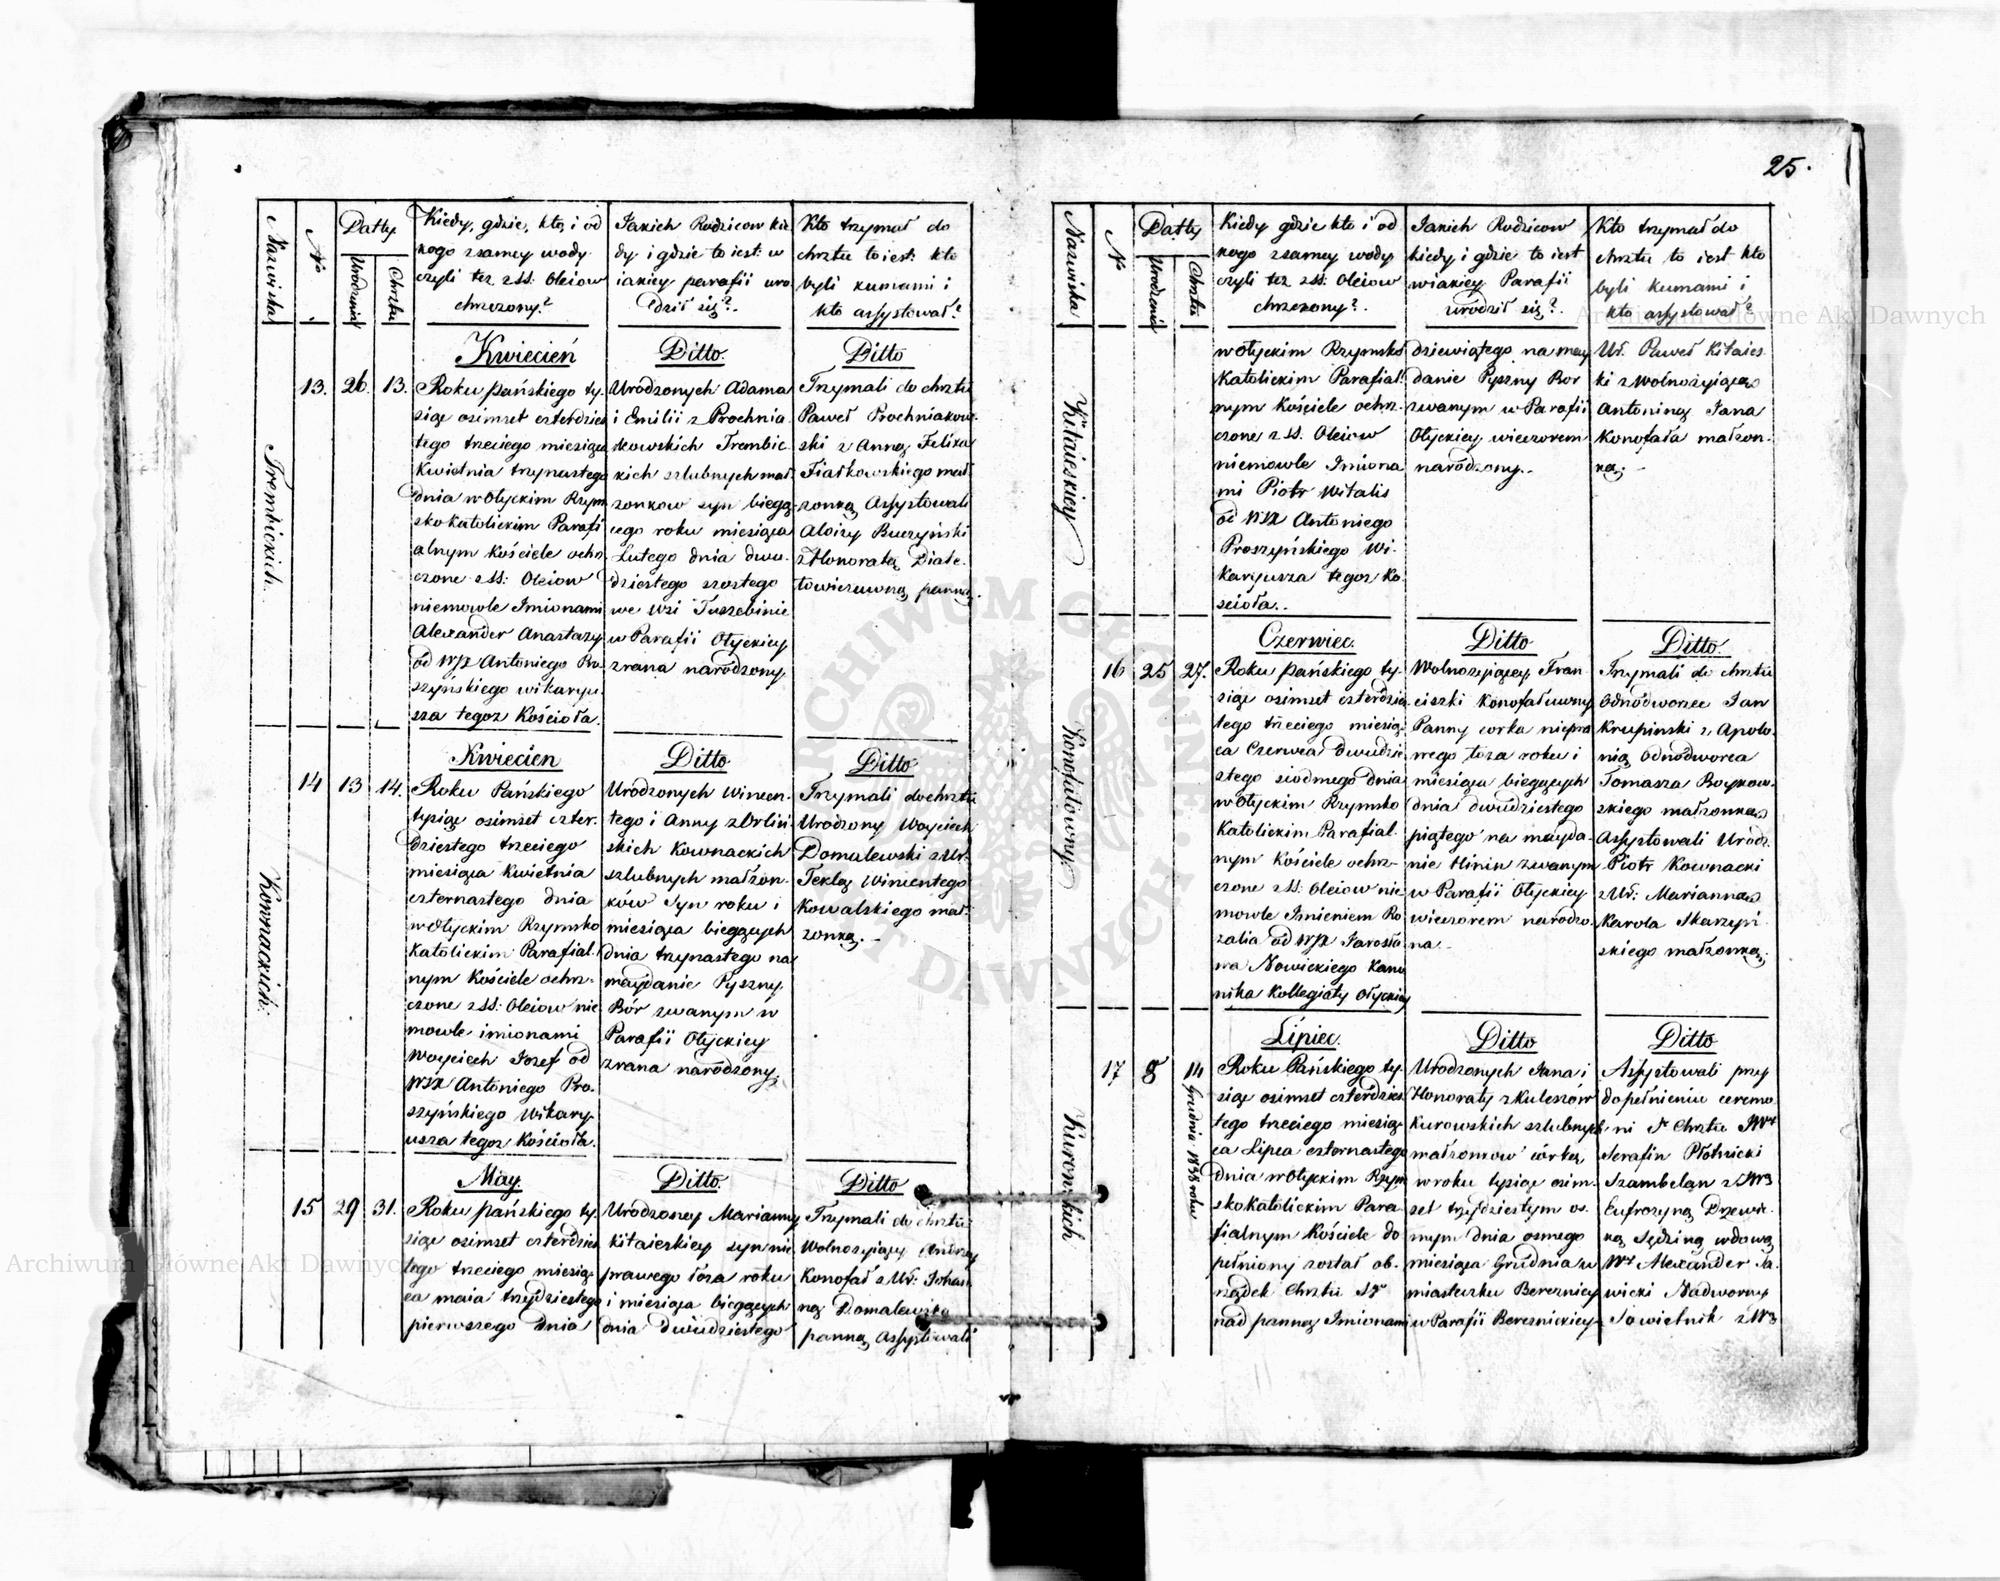 25.
Nazwiska
No
Datty
Urodzenia
Chrztu
Kiedy, gdzie, kto, i od
kogo z samey wody
czyli też z SS. Oleiow
chrzczony?
Jakich Rodzicow kie
dy i gdzie to iest: w
iakiey parafii uro
dził się?
Kto trzymał do
chrztu to iest: kto
byli kumami i
kto assystował?
Trembickich.
Kwiecień
13. 26. 13.
Roku pańskiego ty.
siąc osimset czterdzies
tego trzeciego miesiąca
Kwietnia trzynastego
dnia w Ołyckim Rzym
sko katolickim Parafi
alnym Kościele ochrz.
czone z SS: Oleiow
niemowle Imionami
Alexander Anastazy
od WJX Antoniego Pro
szyńskiego wikaryu.
sza tegoz Kościoła.
Ditto.
Urodzonych Adama
i Emilii z Prochnia
kowskich Trembic
kich szlubnych mał.
zonkow syn biegą.
cego roku miesiąca
Lutego dnia dwu.
dziestego szostego
we Wsi Tuszebinie
w Parafii Ołyckiey
zrana narodzony
Ditto
Trzymali do chrztu
Paweł Prochniakow.
ski z Anną Felixa
Fiałkowskiego mał
zonką Assystowali
Aloizy Buczyński
z Honoratą Diale.
towiczuwną panną.
Kownackich.
Kwiecien
14 13 14.
Roku Pańskiego
tysiąc osimset czter.
dziestego trzeciego
miesiąca Kwietnia
czternastego dnia
w Ołyckim Rzymsko
Katolickim Parafial.
nym Kościele ochrz.
czone z SS: Oleiow nie
mowle imionami
Woyciech Jozef od
WJX Antoniego Pro.
szyńskiego Wikary.
usza tegoz Kościoła.
Ditto
Urodzonych Wincen.
tego i Anny z Orliń
skich Kownackich
szlubnych małzon.
ków Syn roku i
miesiąca biegących
dnia trzynastego na
maydanie Pyszny
Bór zwanym w
Parafii Ołyckiey
zrana narodzony.
Ditto
Trzymali do chrztu
Urodzony Woyciech
Domalewski z Ur.
Teklą Wincentego
Kowalskiego mał.
zonką.
May.
15 29 31.
Roku pańskiego ty.
siąc osimset czterdzies
tego trzeciego miesią
ca maia trzydziestego
pierwszego dnia
Ditto.
Urodzoney Marianny
Kitaieskiey syn nie
prawego łoza roku
i miesiąca biegących
dnia dwudziestego
Ditto
Trzymali do chrztu
Wolnozyiący Andrzey
Konofał z Ur: Johan
ną Domalewską
panną Assystowali
Nazwiska
No
Datty
Urodzenia
Chrztu
Kiedy gdzie kto i od
kogo z samey wody
czyli też z SS. Oleiow
chrzczony?
Jakich Rodzicow
kiedy i gdzie to iest
w iakiey Parafii
urodził się?
Kto trzymał do
chrztu to iest kto
byli kumami i
kto assystował?
Kitaieskiey
w Ołyckim Rzymsko
Katolickim Parafial.
nym Kościele ochrz.
czone z SS. Oleiow
niemowle Imiona
mi Piotr Witalis
od WJX Antoniego
Proszyńskiego Wi.
karyusza tegoz Ko.
scioła.
dziewiątego na may
danie Pyszny Bor
zwanym w Parafii
Ołyckiey wieczorem
narodzony.
Ur. Paweł Kitaies
ki z Wolnozyiącą
Antoniną Jana
Konofała małzon.
ką.
Konofałowny
Czerwiec.
16 25 27.
Roku Pańskiego ty.
siąc osimset czterdzies.
tego trzeciego miesią.
ca Czerwca dwudzie
stego siodmego dnia
w Ołyckim Rzymsko
Katolickim Parafial.
nym Kościele ochrz-
czone z SS: Oleiow nie
mowle Imieniem Ro
zalia od WJX Jarosła
wa Nowickiego Kano
nika Kollegiaty Ołyckiey
Ditto
Wolnozyiącey Fran
ciszki Konofałuwny
Panny corka niepra
wego łoza roku i
miesiąca biegących
dnia dwudziestego
piątego na mayda
nie Hinin zwanym
w Parafii Ołyckiey
wieczorem narodzo.
na.
Ditto.
Trzymali do chrztu
Odnodworzec Jan
Krupinski z Apolo.
nią Odnodworca
Tomasza Boykow.
skiego małzonką
Assystowali Urodz.
Piotr Kownacki
z Ur. Marianną
Karola Skarzyń
skiego małzonką.
Kurowskich
Lipiec.
17 8 14
Grudnia 1838 roku
Roku Pańskiego ty.
siąc osimset czterdzies
tego trzeciego miesią
ca Lipca czternastego
dnia w Ołyckim Rzym
sko katolickim Para
fialnym Kościele do
pełniony został ob.
rządek Chrztu Sgo
nad panną Imionami
Ditto
Urodzonych Jana i
Honoraty z Kuleszów
Kurowskich szlubnych
małzonkow córką
w roku tysiąc osim.
set trzydziestym os.
mym dnia osmego
miesiąca Grudnia w
miasteczku Berezniey
w Parafii Bereznickiey
Ditto
Assystowali przy
dopełnieniu ceremo.
ni S Chrztu JWy
Serafin Płotnicki
Szambelan z JWą
Eufrozyną Drzewic.
ką Sędziną wdową
Wy Alexander Sa.
wicki Nadworny
Sowietnik z Wą
Archiwum Główne Akt Dawnych
Archiwum Główne Akt Dawnych
ARCHIWUM GŁÓWNE AKT DAWNYCH